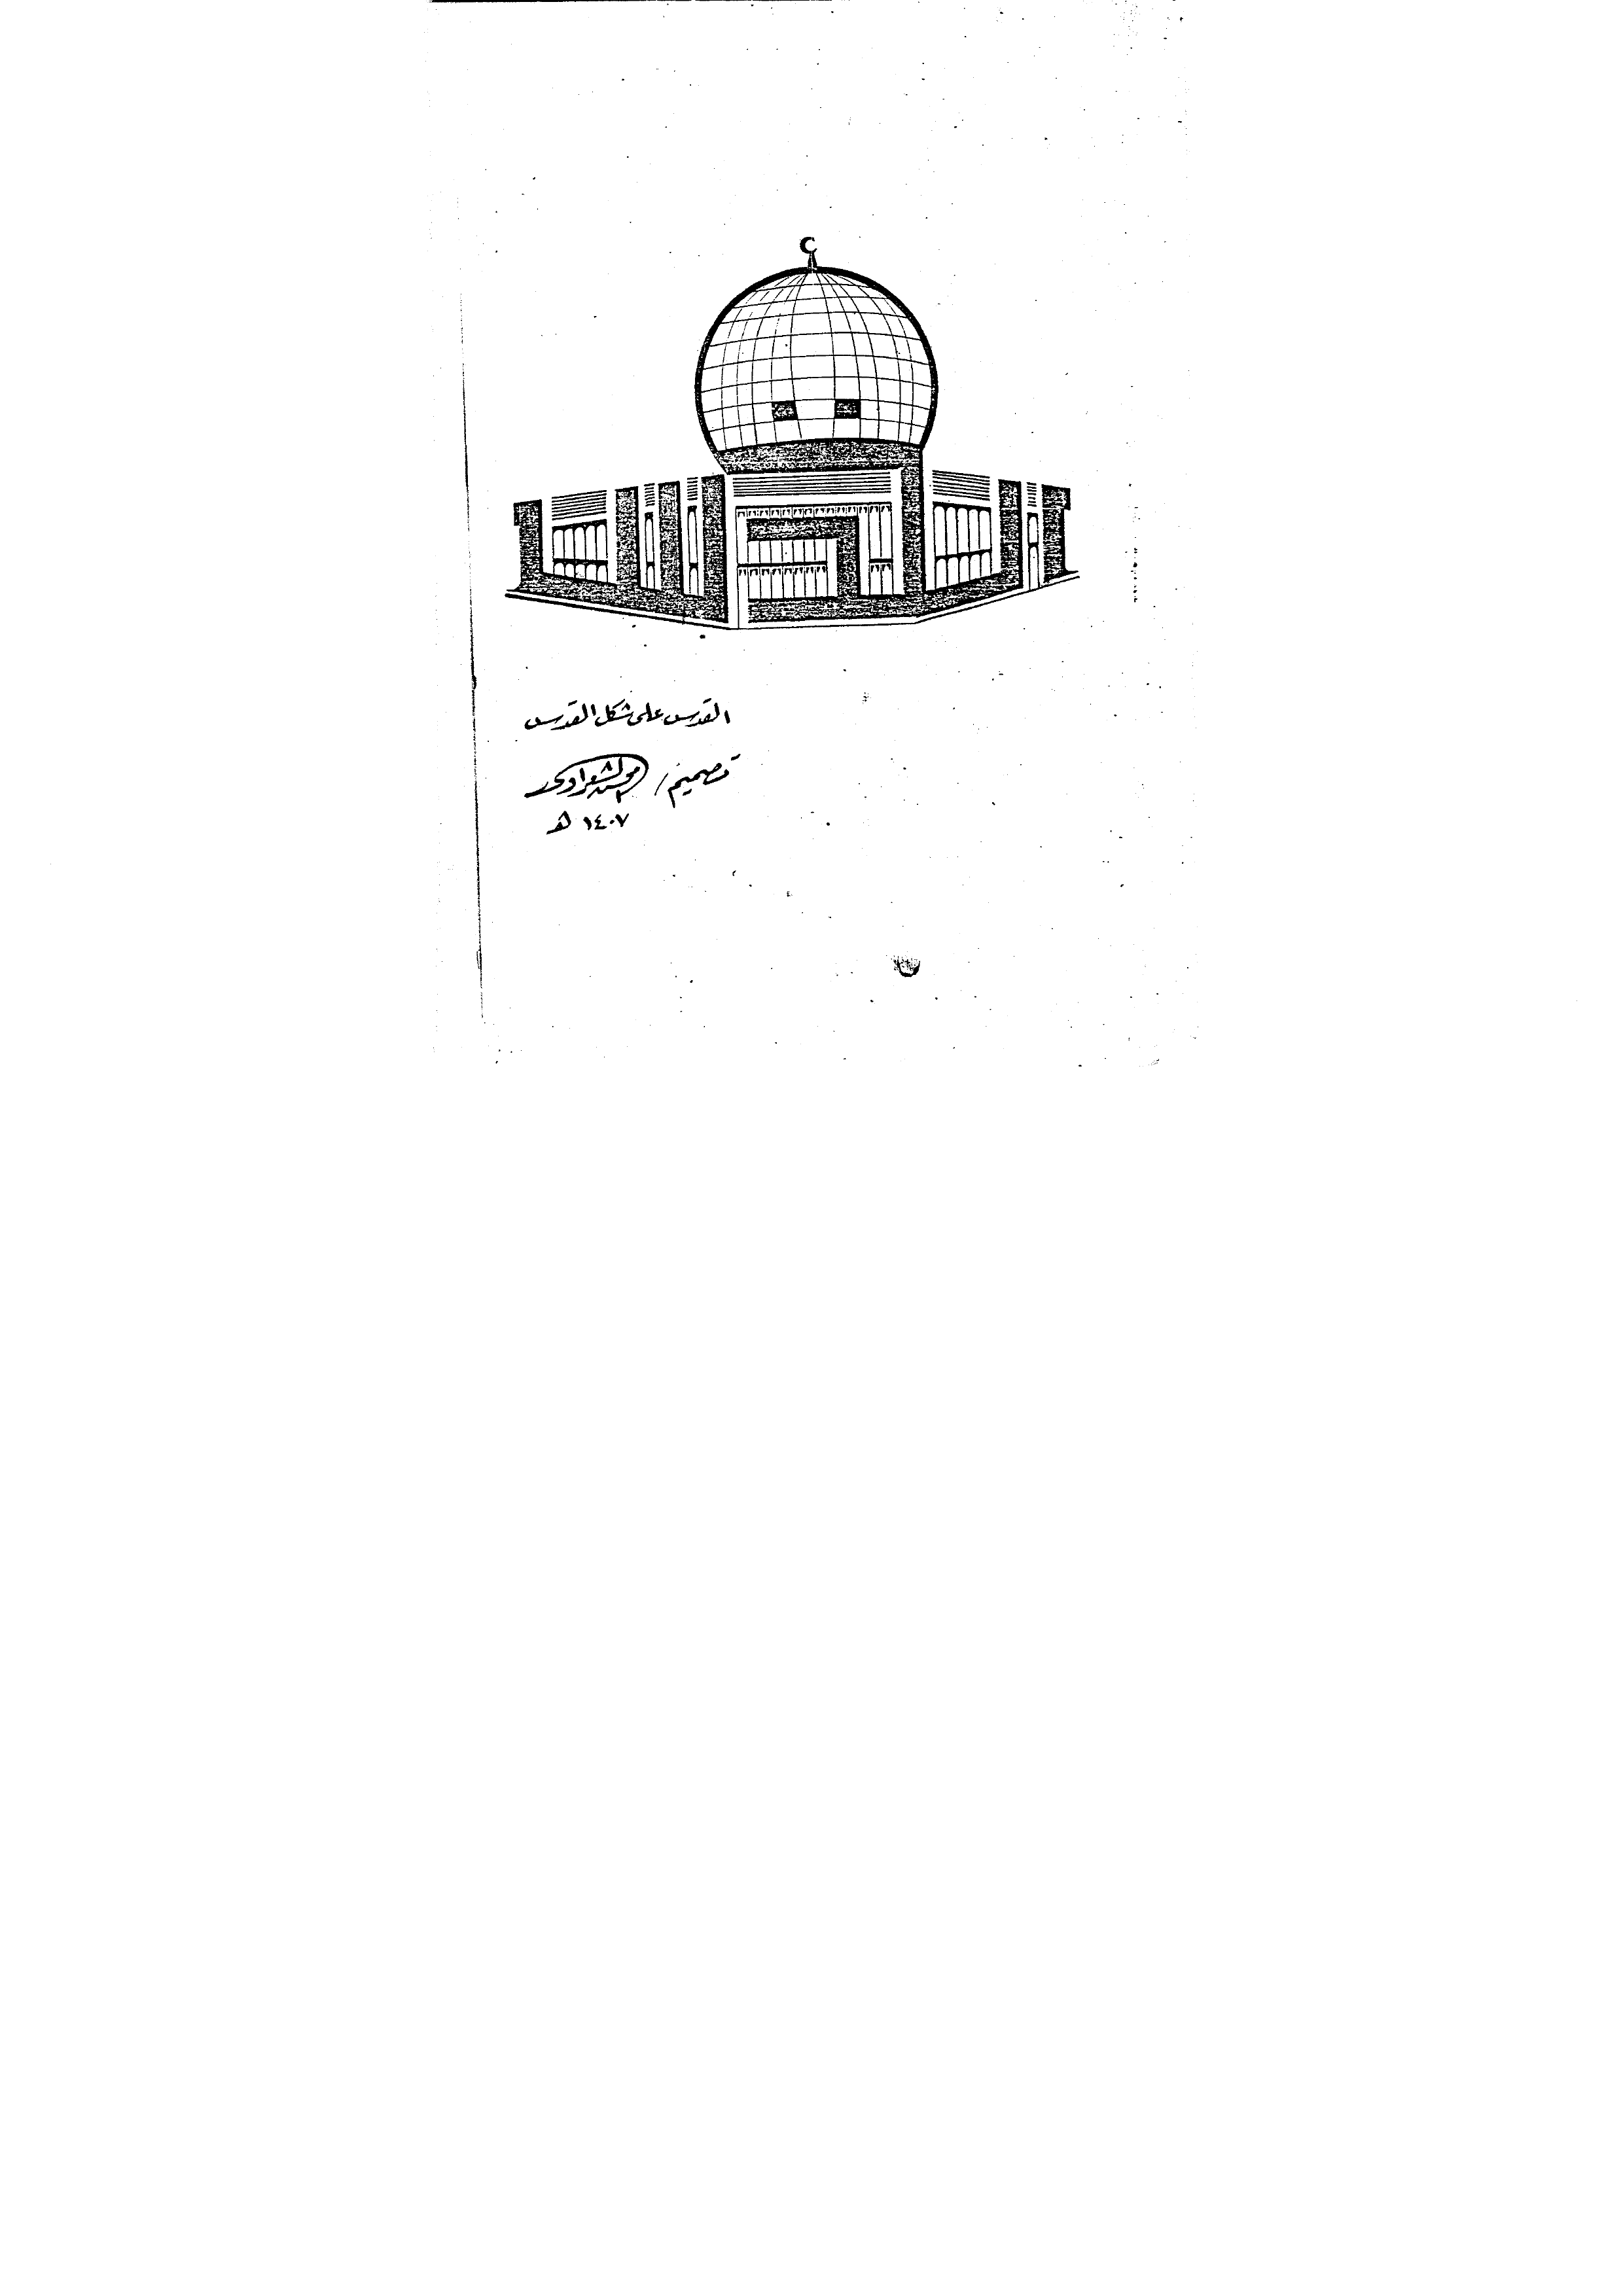 القدس على شكل القدس
تصميم / محسن الشعراوى
١٤٠٧ هـ